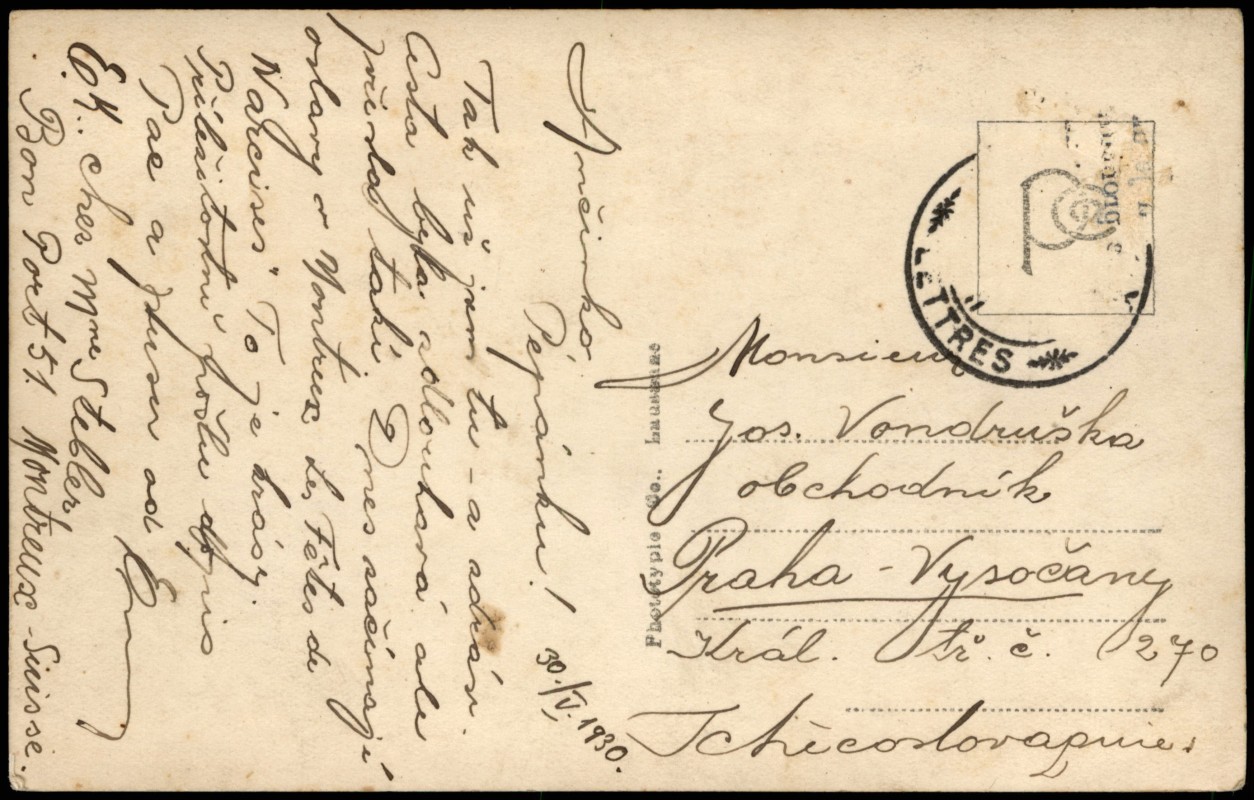 Pepánku!
30./V. 1930.
Tak už jsem tu – a zdráv.
Cesta byla zdlouhavá ale
také. Dnes začínají
oslavy v Montreux Les Fêtes de
Narcises" To je krásy.
Příležitostně pošlu
Pac a pusu od
Ch. chez Mme Stebler
Bon Port 51. Montreux-Suisse.
Phototypie Co., Lausanne
LETTRES
Monsieur
Jos. Vondruška
obchodník
Praha - Vysočany
Král. tř. č. 270
Tchécoslovaquie.